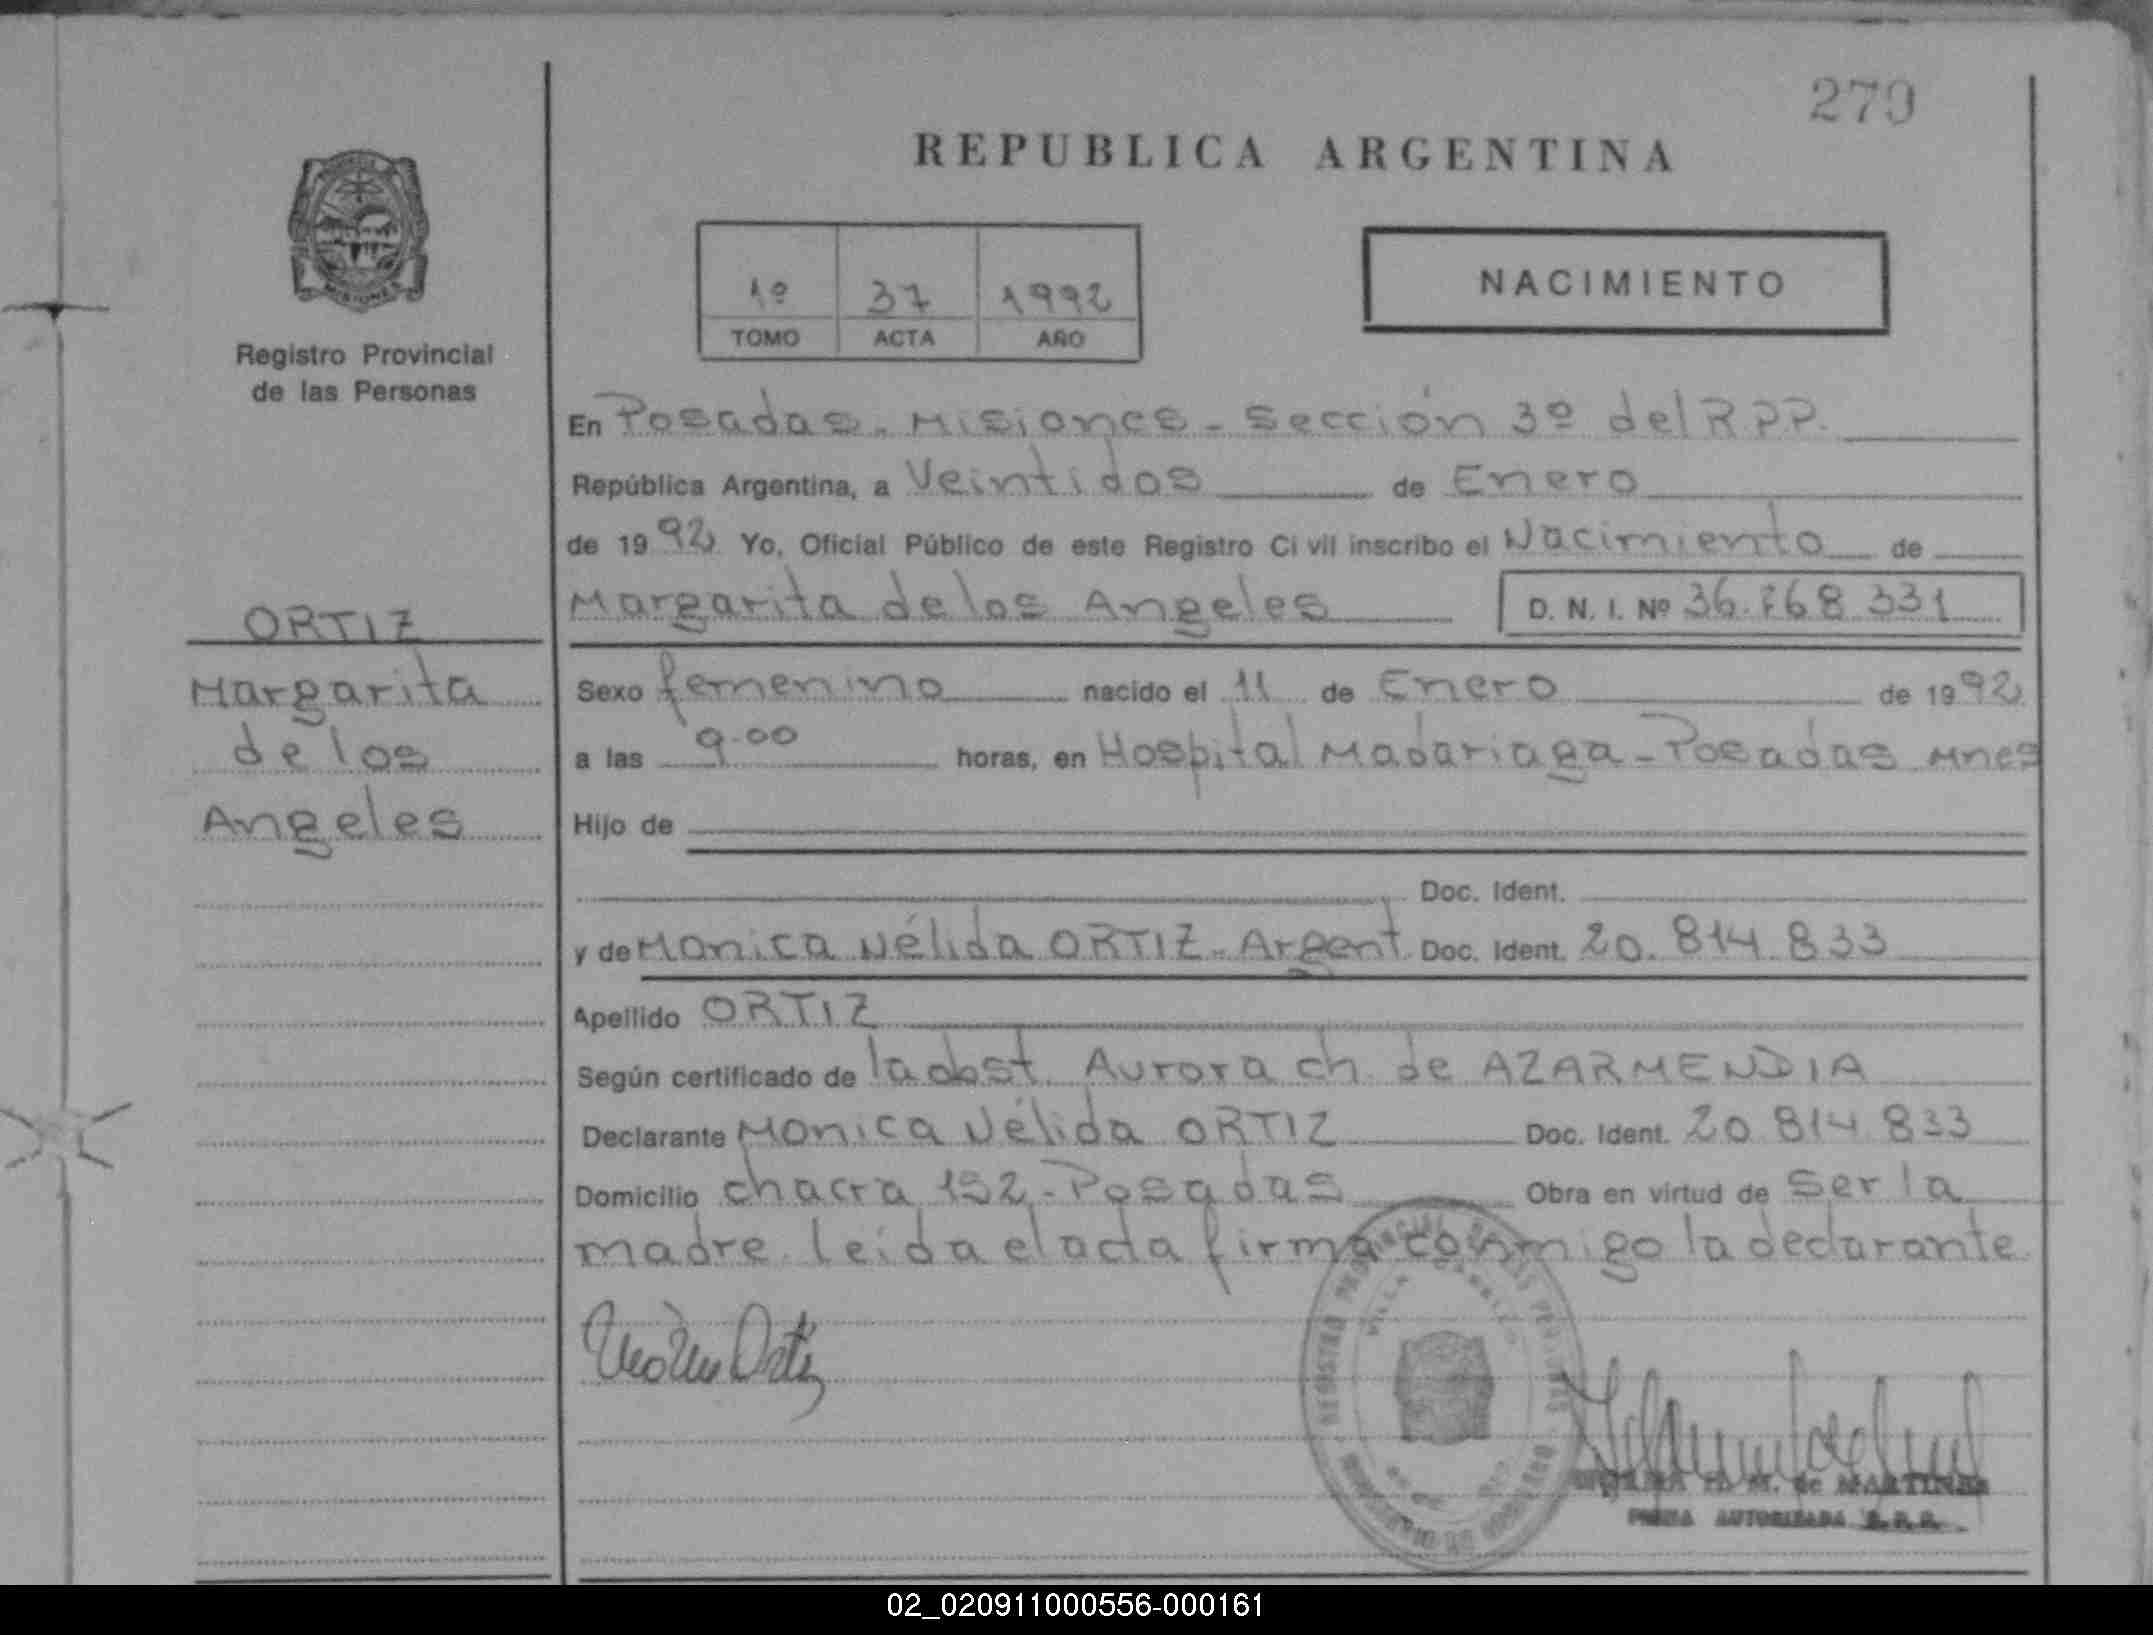 279
REPUBLICA ARGENTINA
MISIONES
Registro Provincial
de las Personas
1º 37 1992
TOMO ACTA AÑO
NACIMIENTO
En Posadas - Misiones - Sección 3º del R P P.
República Argentina, a Veintidos de Enero
de 1992 Yo, Oficial Público de este Registro Civil inscribo el Nacimiento de
Margarita de los Angeles D. N. I. Nº 36.768.331
ORTIZ
Margarita
de los
Angeles
Sexo femenino nacido el 11 de Enero de 1992
a las 9.00 horas, en Hospital Madariaga - Posadas Mnes
Hijo de
Doc. Ident.
y de Monica Nélida ORTIZ - Argent. Doc. Ident. 20.814.833
Apellido ORTIZ
Según certificado de la obst. Aurora ch. de AZARMENDIA
Declarante Monica Nélida ORTIZ Doc. Ident. 20 814 833
Domicilio chacra 152 - Posadas Obra en virtud de Ser la
madre. leida el acta firma conmigo la declarante
REGISTRO PROVINCIAL DE LAS PERSONAS
VILLA
MINISTERIO DE GOBIERNO
Ortiz
M. de MARTINEZ
FIRMA AUTORIZADA R.P.P.
02_020911000556-000161